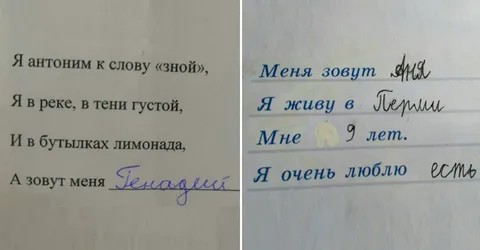 Я антоним к слову «зной»,
Я в реке, в тени густой,
И в бутылках лимонада,
А зовут меня Генадий
Меня зовут Аня
Я живу в Перми
Мне 9 лет.
Я очень люблю есть